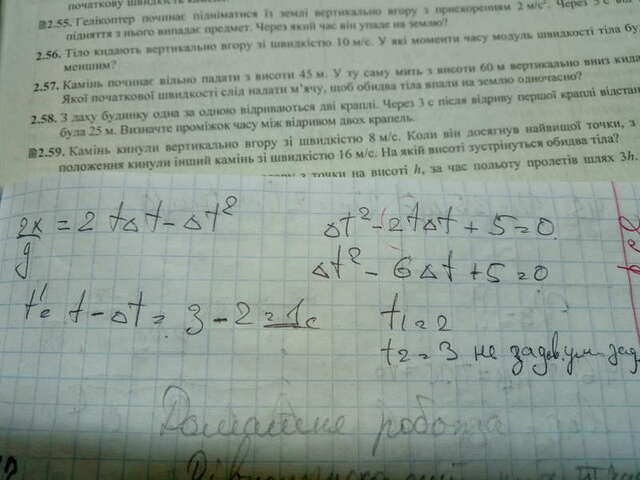 початкову швидкість
2.55. Гелікоптер починає підніматися із землі вертикально вгору з прискоренням 2 м/с². Через 5 с
підняття з нього випадає предмет. Через який час він упаде на землю?
2.56. Тіло кидають вертикально вгору зі швидкістю 10 м/с. У які моменти часу модуль швидкості тіла
меншим?
2.57. Камінь починає вільно падати з висоти 45 м. У ту саму мить з висоти 60 м вертикально вниз кида
Якої початкової швидкості слід надати м'ячу, щоб обидва тіла впали на землю одночасно?
2.58. З даху будинку одна за одною відриваються дві краплі. Через 3 с після відриву першої краплі відстан
була 25 м. Визначте проміжок часу між відривом двох крапель.
2.59. Камінь кинули вертикально вгору зі швидкістю 8 м/с. Коли він досягнув найвищої точки, з
положення кинули інший камінь зі швидкістю 16 м/с. На якій висоті зустрінуться обидва тіла?
з точки на висоті h, за час польоту пролетів шлях 3h.
2x/g = 2t∆t - ∆t²
∆t² - 2t∆t + 5 = 0
∆t² - 6∆t + 5 = 0
t' = t - ∆t = 3 - 2 = 1c
t1 = 2
t2 = 3 не задов. ум. зад.
Домашня робота